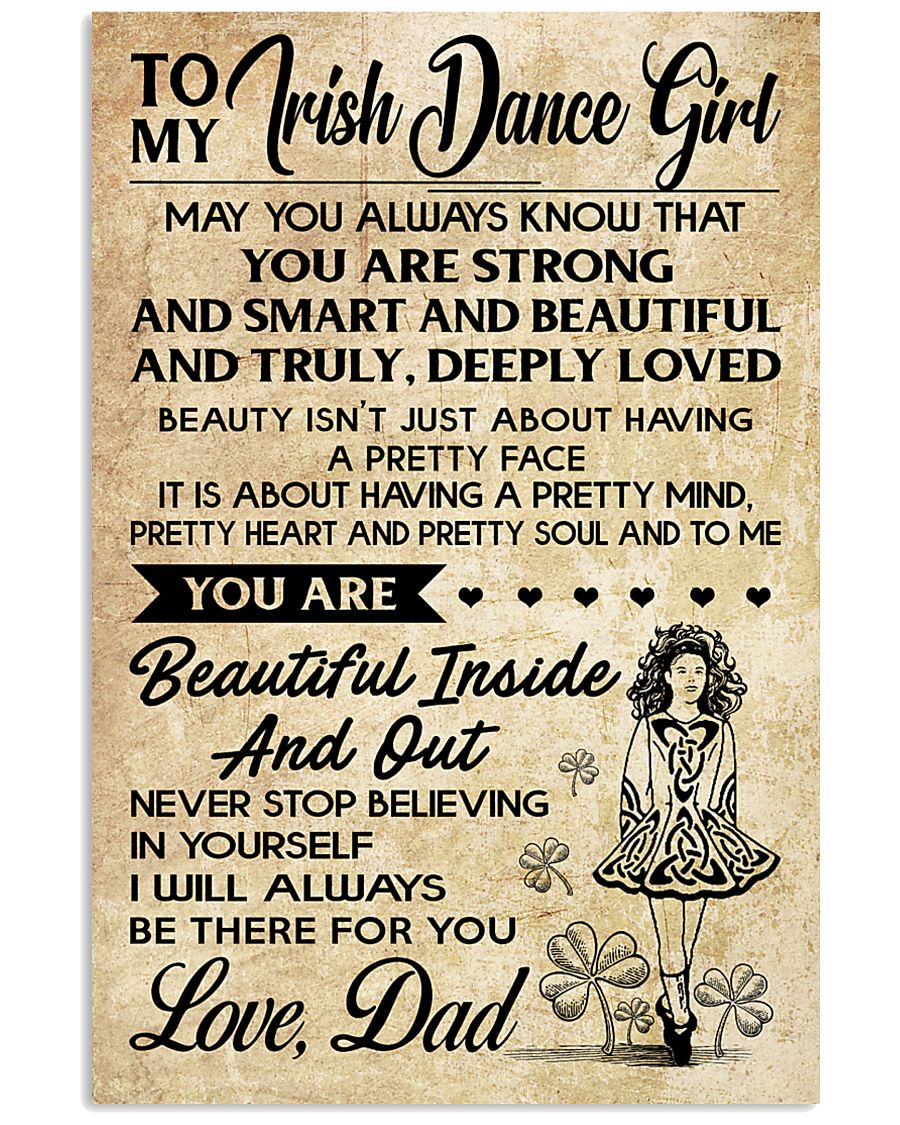 TO MY Irish Dance Girl
MAY YOU ALWAYS KNOW THAT
YOU ARE STRONG
AND SMART AND BEAUTIFUL
AND TRULY, DEEPLY LOVED
BEAUTY ISN'T JUST ABOUT HAVING
A PRETTY FACE
IT IS ABOUT HAVING A PRETTY MIND,
PRETTY HEART AND PRETTY SOUL AND TO ME
YOU ARE
Beautiful Inside
And Out
NEVER STOP BELIEVING
IN YOURSELF
I WILL ALWAYS
BE THERE FOR YOU
Love, Dad